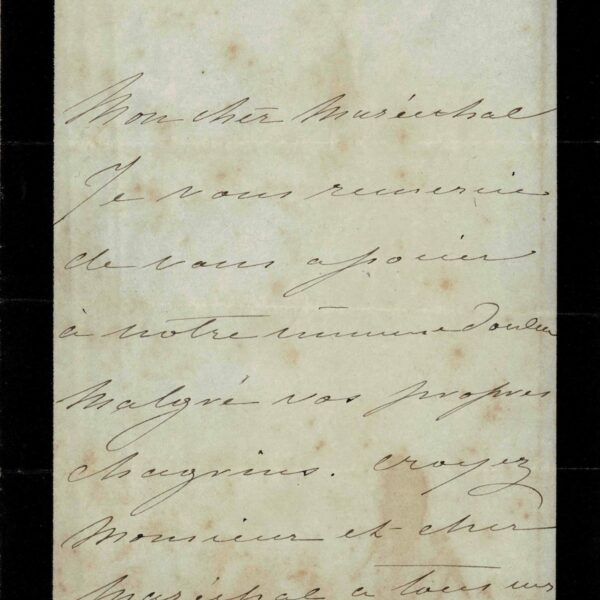 Mon cher Maréchal
Je vous remercie
de vous associer
à notre immense douleur
Malgré vos propres
chagrins. croyez
Monsieur et cher
Maréchal a tous